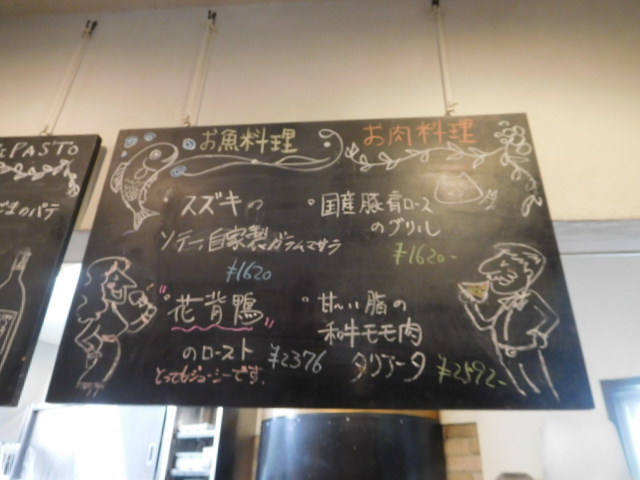 PASTO
のパテ
お魚料理
スズキの
ソテー自家製ガラムマサラ
¥1620
"花背鴨"
のロースト ¥2376
とってもジューシーです。
お肉料理
国産豚肩ロース
のグリル
¥1620-
甘〜い脂の
和牛モモ肉
タリアータ ¥2592-